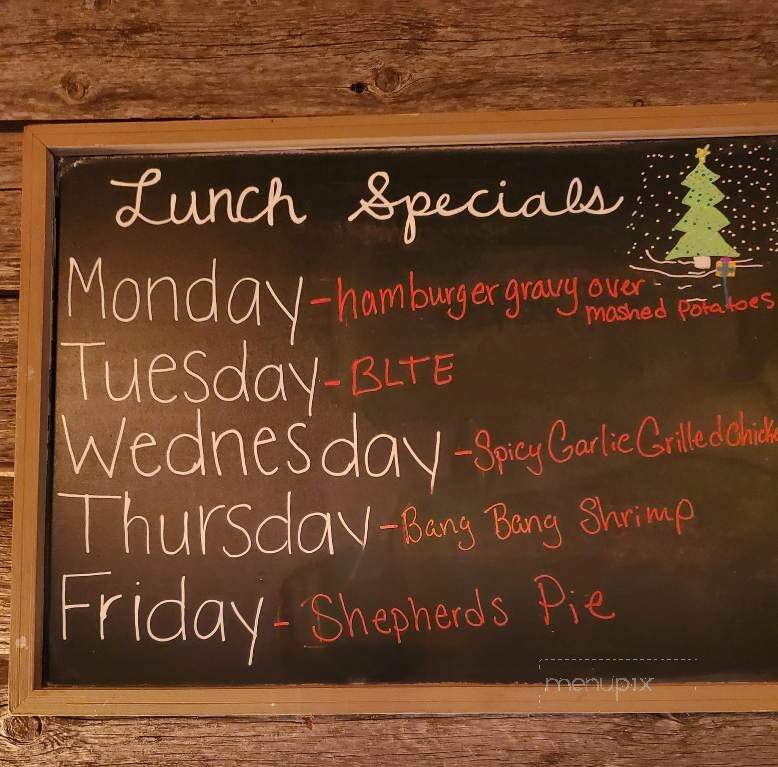 Lunch Specials
Monday - hamburger gravy over
mashed potatoes
Tuesday - BLTE
Wednesday - Spicy Garlic Grilled
Thursday - Bang Bang Shrimp
Friday - Shepherds Pie
menupix